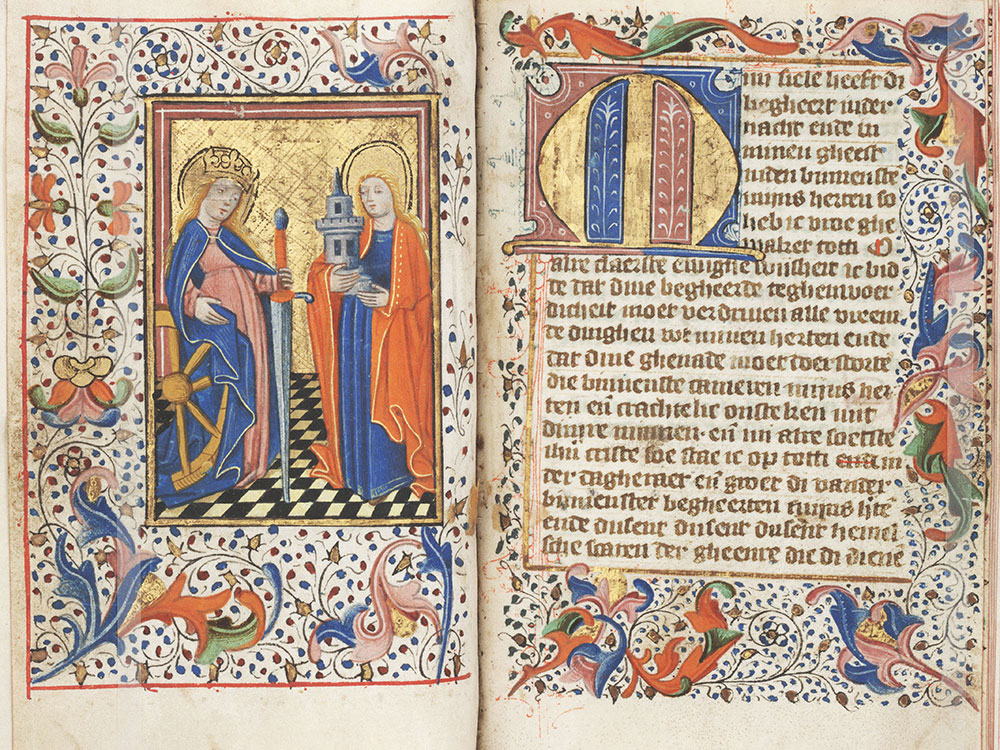 Mijn siele heeft di
begheert inder
nacht ende in
minen gheest
inden binnenste
mijns herten so
heb ic vroe ghe
waket totti O
alre claerste ewighe wijsheit ic bid
de dat dine begheerde teghenwoer
dicheit moet verdriven alle
duighen wt minen herten ende
dat dine ghenade moet doer storte
die binnenste cameren mijns her
ten eñ crachtelic ontsteken mit
dijnre minnen eñ mijn alre soetste
ihu criste soe stae ic op totti in
der dagheraet eñ groet di vander
binnenster begheerten mijns hte
ende dusent dusent dusent hemel
sche scaren der gheenre die di diene